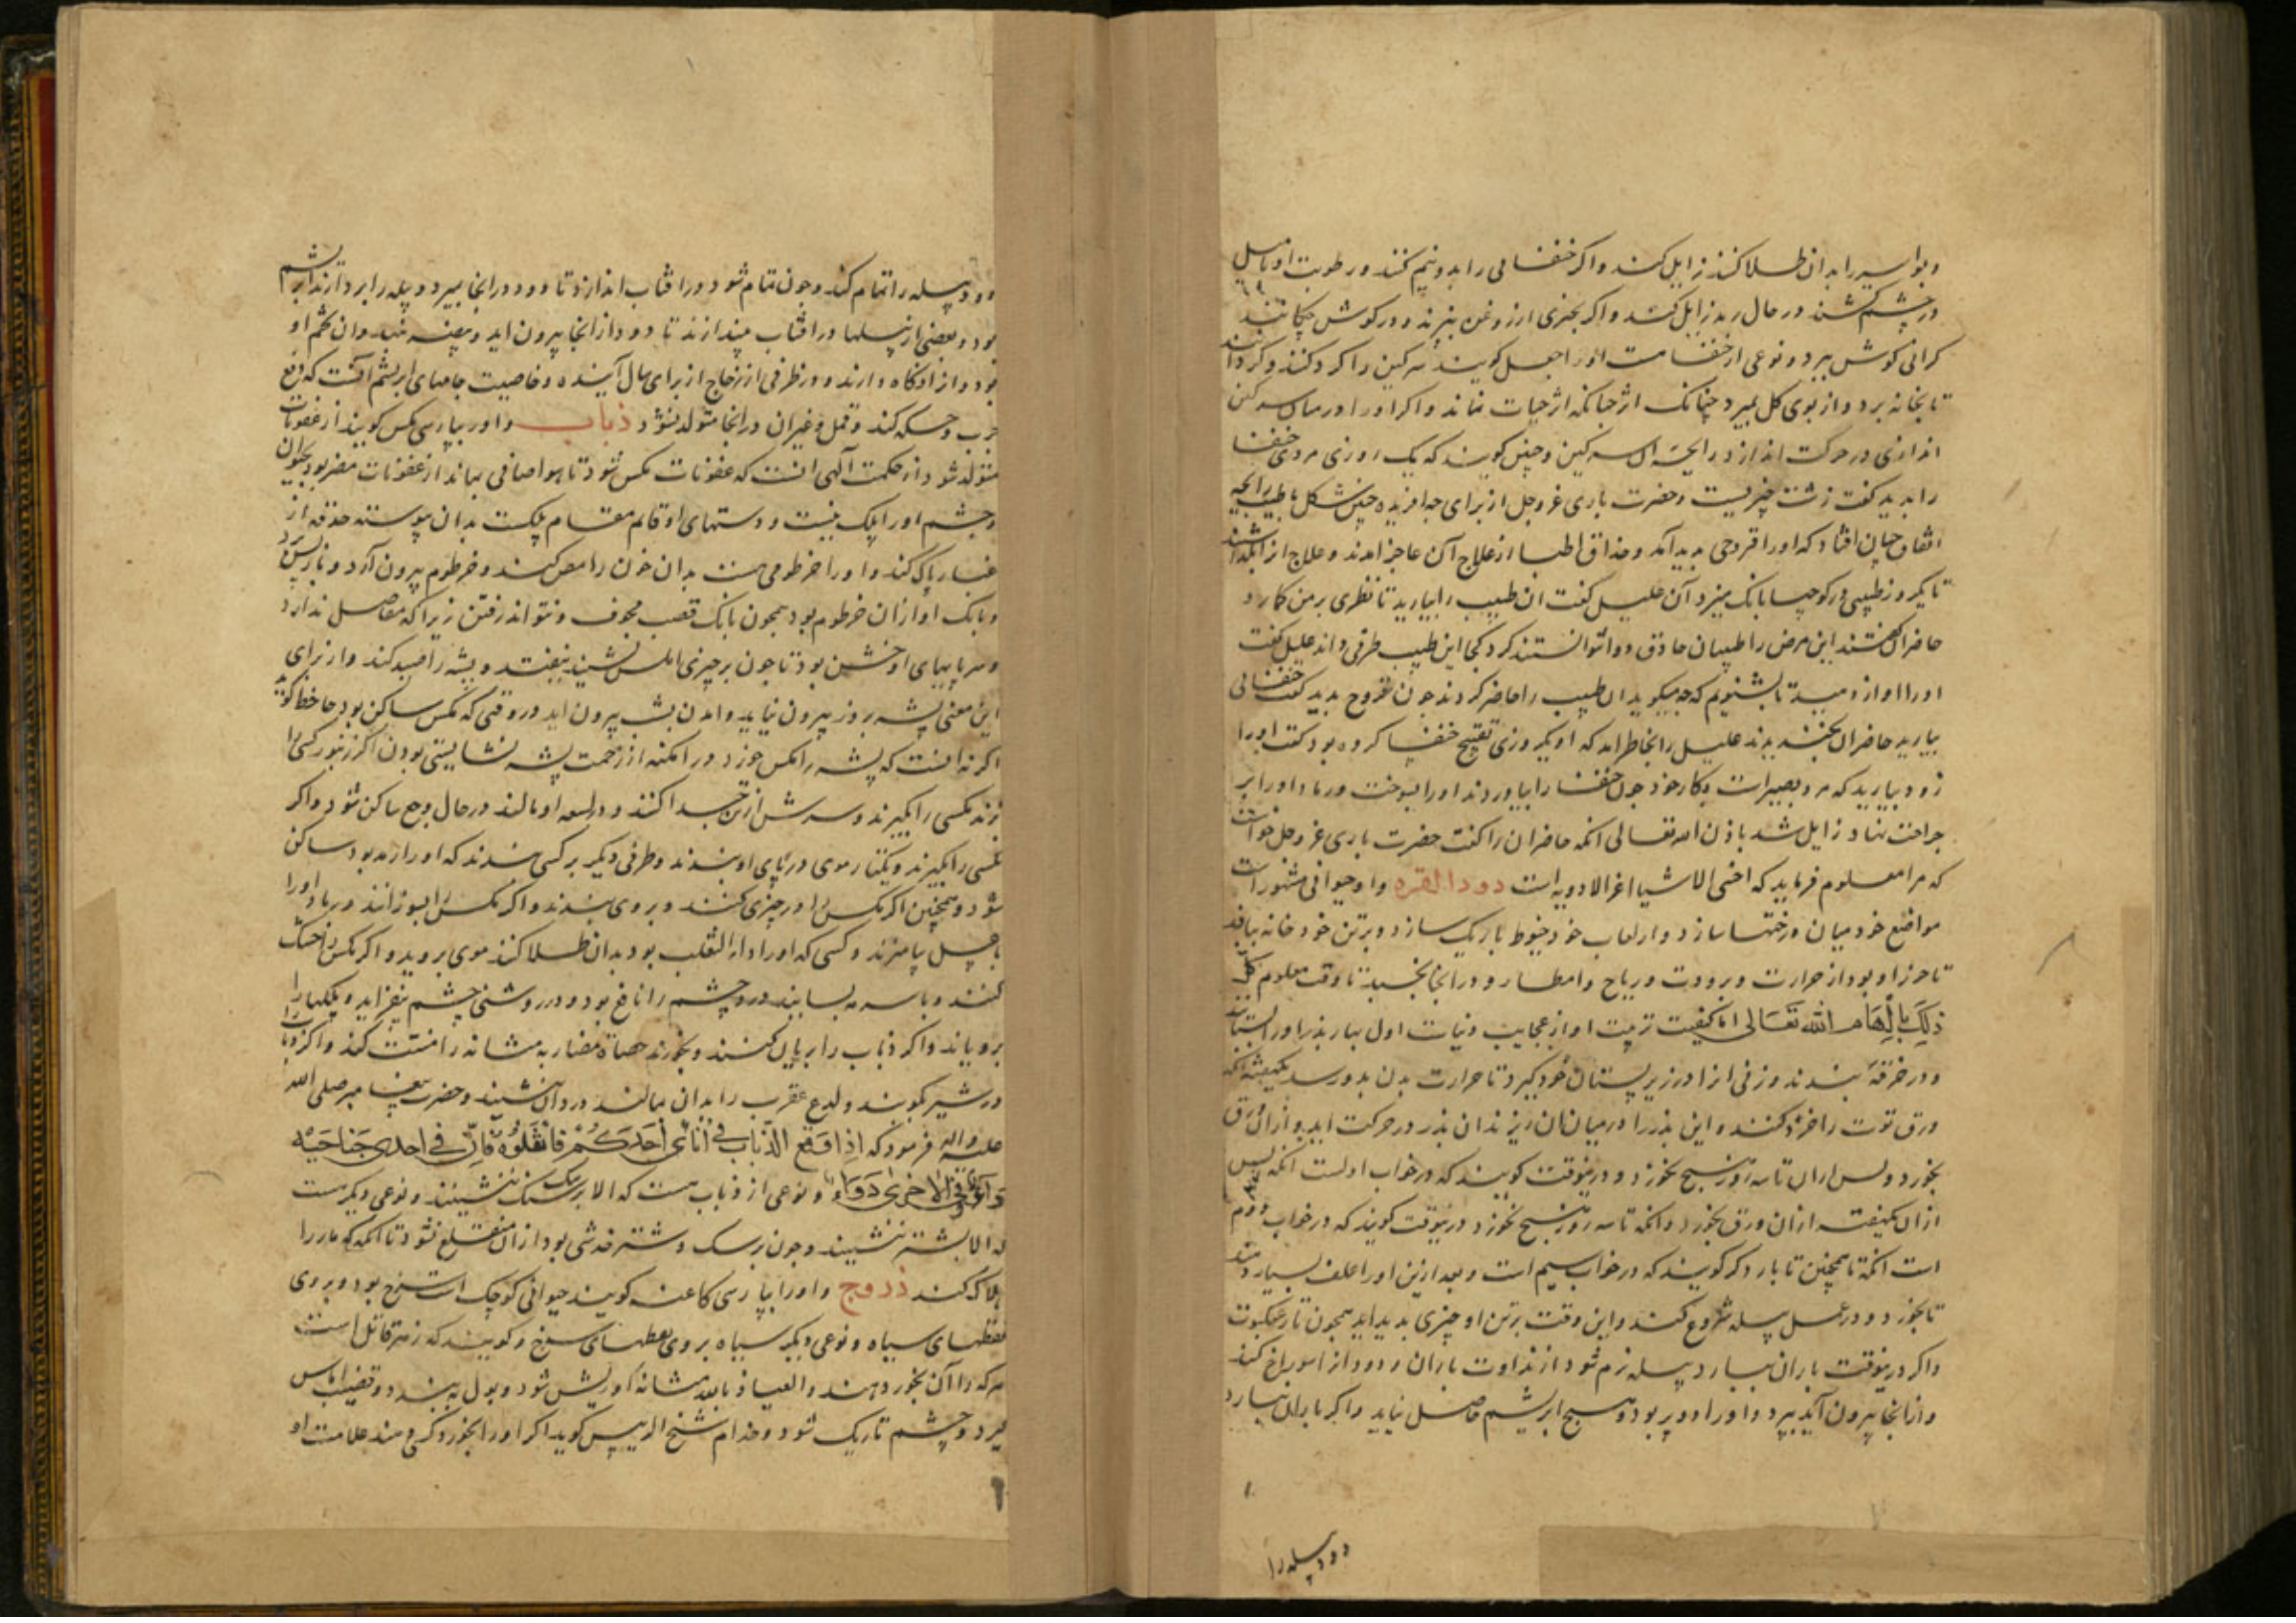 و بواسیر را بدان طلا کنند زایل کند و اکر خنفسا می را بدو نیم کنند و رطوبت او بامیل
در چشم کشند در حال رمد زایل کند و اکر بجزی از روغن بپزند و در کوش چکانند
کرانی کوش ببرد و نوعی از خنفسا است او را جعل کویند سرکین را کرد کند و کرداند
تا بخانه برد و از بوی کل بمیرد چنانک اثر حیات نماند و اکر او را در میان سرکین
اندازی در حرکت اندازد رایحه آن سرکین و چنین کویند که یک روزی مردی خنفسا
را بدید کفت زشت چیزیست و حضرت باری عز و جل از برای چه افریده چنین شکل با طیب رایحه
اتفاق چنان افتاد که او را قروحی بدید آمد و حذاق اطبا از علاج آن عاجز امدند و علاج از
تا یکروز طبیبی در کوچها بانک میزد آن علیل کفت ان طبیب را بیارید تا نظری بر من کمارد
حاضران کفتند این مرض را طبیبان حاذق دوا نتوانستند کرد کجا این طبیب طرقی داند علیل کفت
او را اواز دهید تا بشنویم که چه میکوید ان طبیب را حاضر کردند چون قروح بدید کفت خنفسائی
بیارید حاضران بخندیدند علیل را بخاطر امد که او یکروزی تقبیح خنفسا کرده بود کفت او را
زود بیارید که مرد بصیر است بکار خود چون خنفسا را بیاوردند او را بسوخت و رماد او را بر
جراحت نهاد زایل شد باذن الله تعالی انکه حاضران را کفت حضرت باری عز و جل خواست
که مرا معلوم فرماید که اخس الاشیا اعز الادویه است دود القز و او حیوانی مشهور است
مواضع خود میان درختها سازد و از لعاب خود خیوط باریک سازد و بر تن خود خانه بافد
تا حرز او بود از حرارت و برودت و ریاح و امطار و در انجا بخسبد تا وقت معلوم کل
ذلک بالهام الله تعالی اما کیفیت تربیت او از عجایب دنیاست اول بهار بذر او را بستانند
و در خرقه بندند و زنی از ا در زیر پستان خود کیرد تا حرارت بدن بدو رسد یکهفته انکه
ورق توت را خرد کنند و این بذر را در میان آن ریزند ان بذر در حرکت اید و از ان ورق
بخورد و پس از ان تا سه روز هیچ نخورد و درینوقت کویند که در خواب اولست انکه پس
از ان یکهفته از ان ورق بخورد و انکه تا سه روز هیچ نخورد و درینوقت کویند که در خواب دوم
است انکه تا همچنین تا بار دکر کویند که در خواب سیم است و بعد ازین او را علف بسیار دهند
تا بخورد و در عمل پیله شروع کند و این وقت بر تن او چیزی بدید اید همچون تار عنکبوت
و اکر درینوقت باران ببارد پیله نرم شود از نداوت باران و دود از ا سوراخ کند
و از انجا بیرون آید بپرد و او را دو پر بود و هیچ ابریشم حاصل نیاید و اکر باران نبارد
دود پیله را
دود پیله را تمام کند و چون تمام شود در افتاب اندازد تا دود در انجا بمیرد و پیله را بردارند ابریشم
بود و بعضی از پیلها در افتاب نیندازند تا دود از انجا بیرون اید و بیضه نهد و ان تخم او
بود و از ا نکاه دارند در ظرفی از زجاج از برای سال آینده و خاصیت جامهای ابریشم آنست که دفع
جرب و حکه کند و قمل و غیر ان در انجا متولد نشود ذباب و او را بپارسی مکس کویند از عفونات
متولد شود از حکمت آلهی انست که عفونات مکس شود تا هوا صافی بماند از عفونات مضر بود بحیوان
و چشم او را پلک نیست و دستهای او قایم مقام پلکست بدان پیوسته حدقه از
غبار پاک کند و او را خرطومی هست بدان خون را مص کند و خرطوم بیرون آرد و باز پس برد
و بانک او از ان خرطوم بود همچون بانک قصب مجوف و نتواند رفتن زیرا که مفاصل ندارد
و سر پایهای او خشن بود تا چون بر چیزی املس نشیند نیفتد و پشه را صید کند و از برای
این معنی پشه بروز بیرون نیاید و امدن بشب بیرون اید در وقتی که مکس ساکن بود جاحظ کوید
اکر نه انست که پشه را مکس خورد در امکنه از زحمت پشه نشایستی بودن اکر زنبور کسی را
زند مکسی را بکیرند و سرش از تن جدا کنند و در لسعه او مالند در حال وجع ساکن شود و اکر
مکسی را بکیرند و یکتار موی در پای او بندند و طرفی دیکر بر کسی بندند که او را رمد بود ساکن
شود و همچنین اکر مکس را در چیزی کنند و بر وی بندند و اکر مکس را بسوزانند و رماد او را
با عسل بیامیزند و کسی که او را داء الثعلب بود بدان طلا کند موی بروید و اکر مکس را خشک
کنند و با سرمه بسایند درد چشم را نافع بود و در روشنی چشم بیفزاید و پلکها را
برویاند و اکر ذباب را بریان کنند و بخورند حصاة مضار به مثانه را مفتت کند و اکر ذباب
در شیر کوبند و لدغ عقرب را بدان بمالند درد آن بنشیند و حضرت پیغامبر صلی الله
علیه و اله فرمود که اذا وقع الذباب فی اناء احدکم فانقلوه فان فی احدی جناحیه
داء و فی الاخری دواء و نوعی از ذباب هست که الا بر سک ننشیند و نوعی دیکر هست
که الا بشتر ننشیند و چون بر سک و شتر قدشی بود از ان منقلع نشود تا انکه که مار را
هلاک کند ذروح و او را بپارسی کاغنه کویند حیوانی کوچک است سرخ بود و بر وی
نقطهای سیاه و نوعی دیکر سیاه بر وی نقطهای سرخ و کویند که زهر قاتل است
هر که را آن بخورد دهند و العیاذ بالله مثانه او ریش شود و بول به بندد و قضیب اماس
کیرد و چشم تاریک شود و خدام شیخ الرییس کوید اکر او را بخورد کسی دهند علامت او